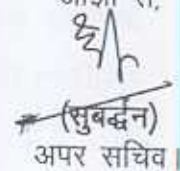 आज्ञा से,
(सुबर्द्धन)
अपर सचिव।